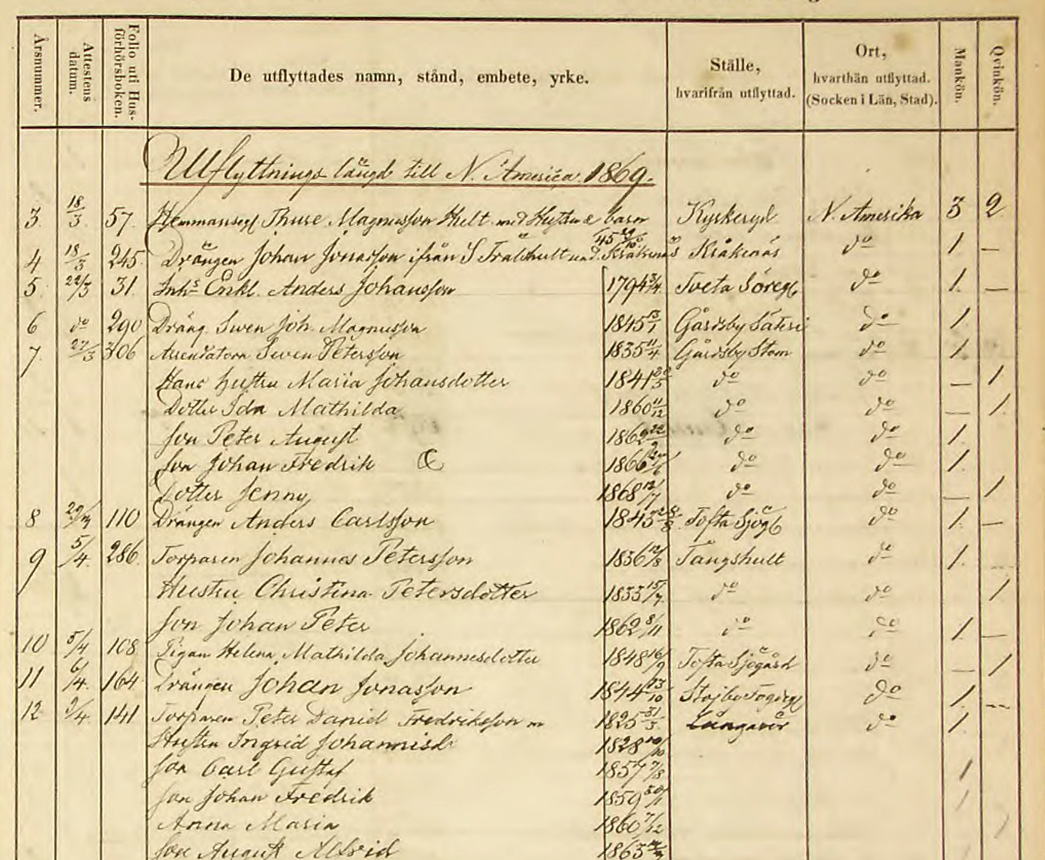 Årsnummer.
Attestens datum.
Folio uti Hus-förhörsboken.
De utflyttades namn, stånd, embete, yrke.
Ställe, hvarifrån utflyttad.
Ort, hvarthän utflyttad. (Socken i Län, Stad).
Mankön.
Qvinkön.
Utflyttnings längd till N. America 1869.
3 18/3 57. Hemmanseg Thure Magnusson Hult med Hustru & barn Kyrkeryd N. Amerika 3 2
4 18/3 245 Drängen Johan Jonasson ifrån S Trälshult Kråkenäs do 1. —
5. 22/3 31. Enkl. Anders Johansson 1794 Tveta Söreg do 1. —
6 do 290 Dräng. Swen Joh. Magnusson 1845 Gårdsby Säteri do 1.
7. 27/3 306 Arrendatorn Swen Petersson 1835 11/4 Gårdsby Stom do 1.
Hans hustru Maria Johansdotter 1841 do do — 1.
Dotter Ida Mathilda 1860 11/12 do do — 1.
Son Peter August do do 1.
Son Johan Fredrik 1866 do do 1.
Dotter Jenny 1868 12/7 do do — 1
8 110 Drängen Anders Carlsson 1845 Tofta Sjög do 1. —
9 5/4. 286. Torparen Johannes Petersson 1836 Tångshult do 1.
Hustru Christina Petersdotter 1833 15/7 do do 1
Son Johan Peter 1862 8/11 do do 1 —
10 5/4 108 Pigan Helena Mathilda Johannesdotter 1848 16/9 Tofta Sjögård do — 1
11 6/4. 164 Drängen Johan Jonasson 1844 13/10 do 1. —
12 141 Torparen Peter Daniel Fredriksson 1825 31/3 do 1.
Hustru Ingrid Johannisd 1828
Son Carl Gustaf 1857 7/8 1
Son Johan Fredrik 1859 1
Anna Maria 1860 7/12 1
Son August Alfrid 1863